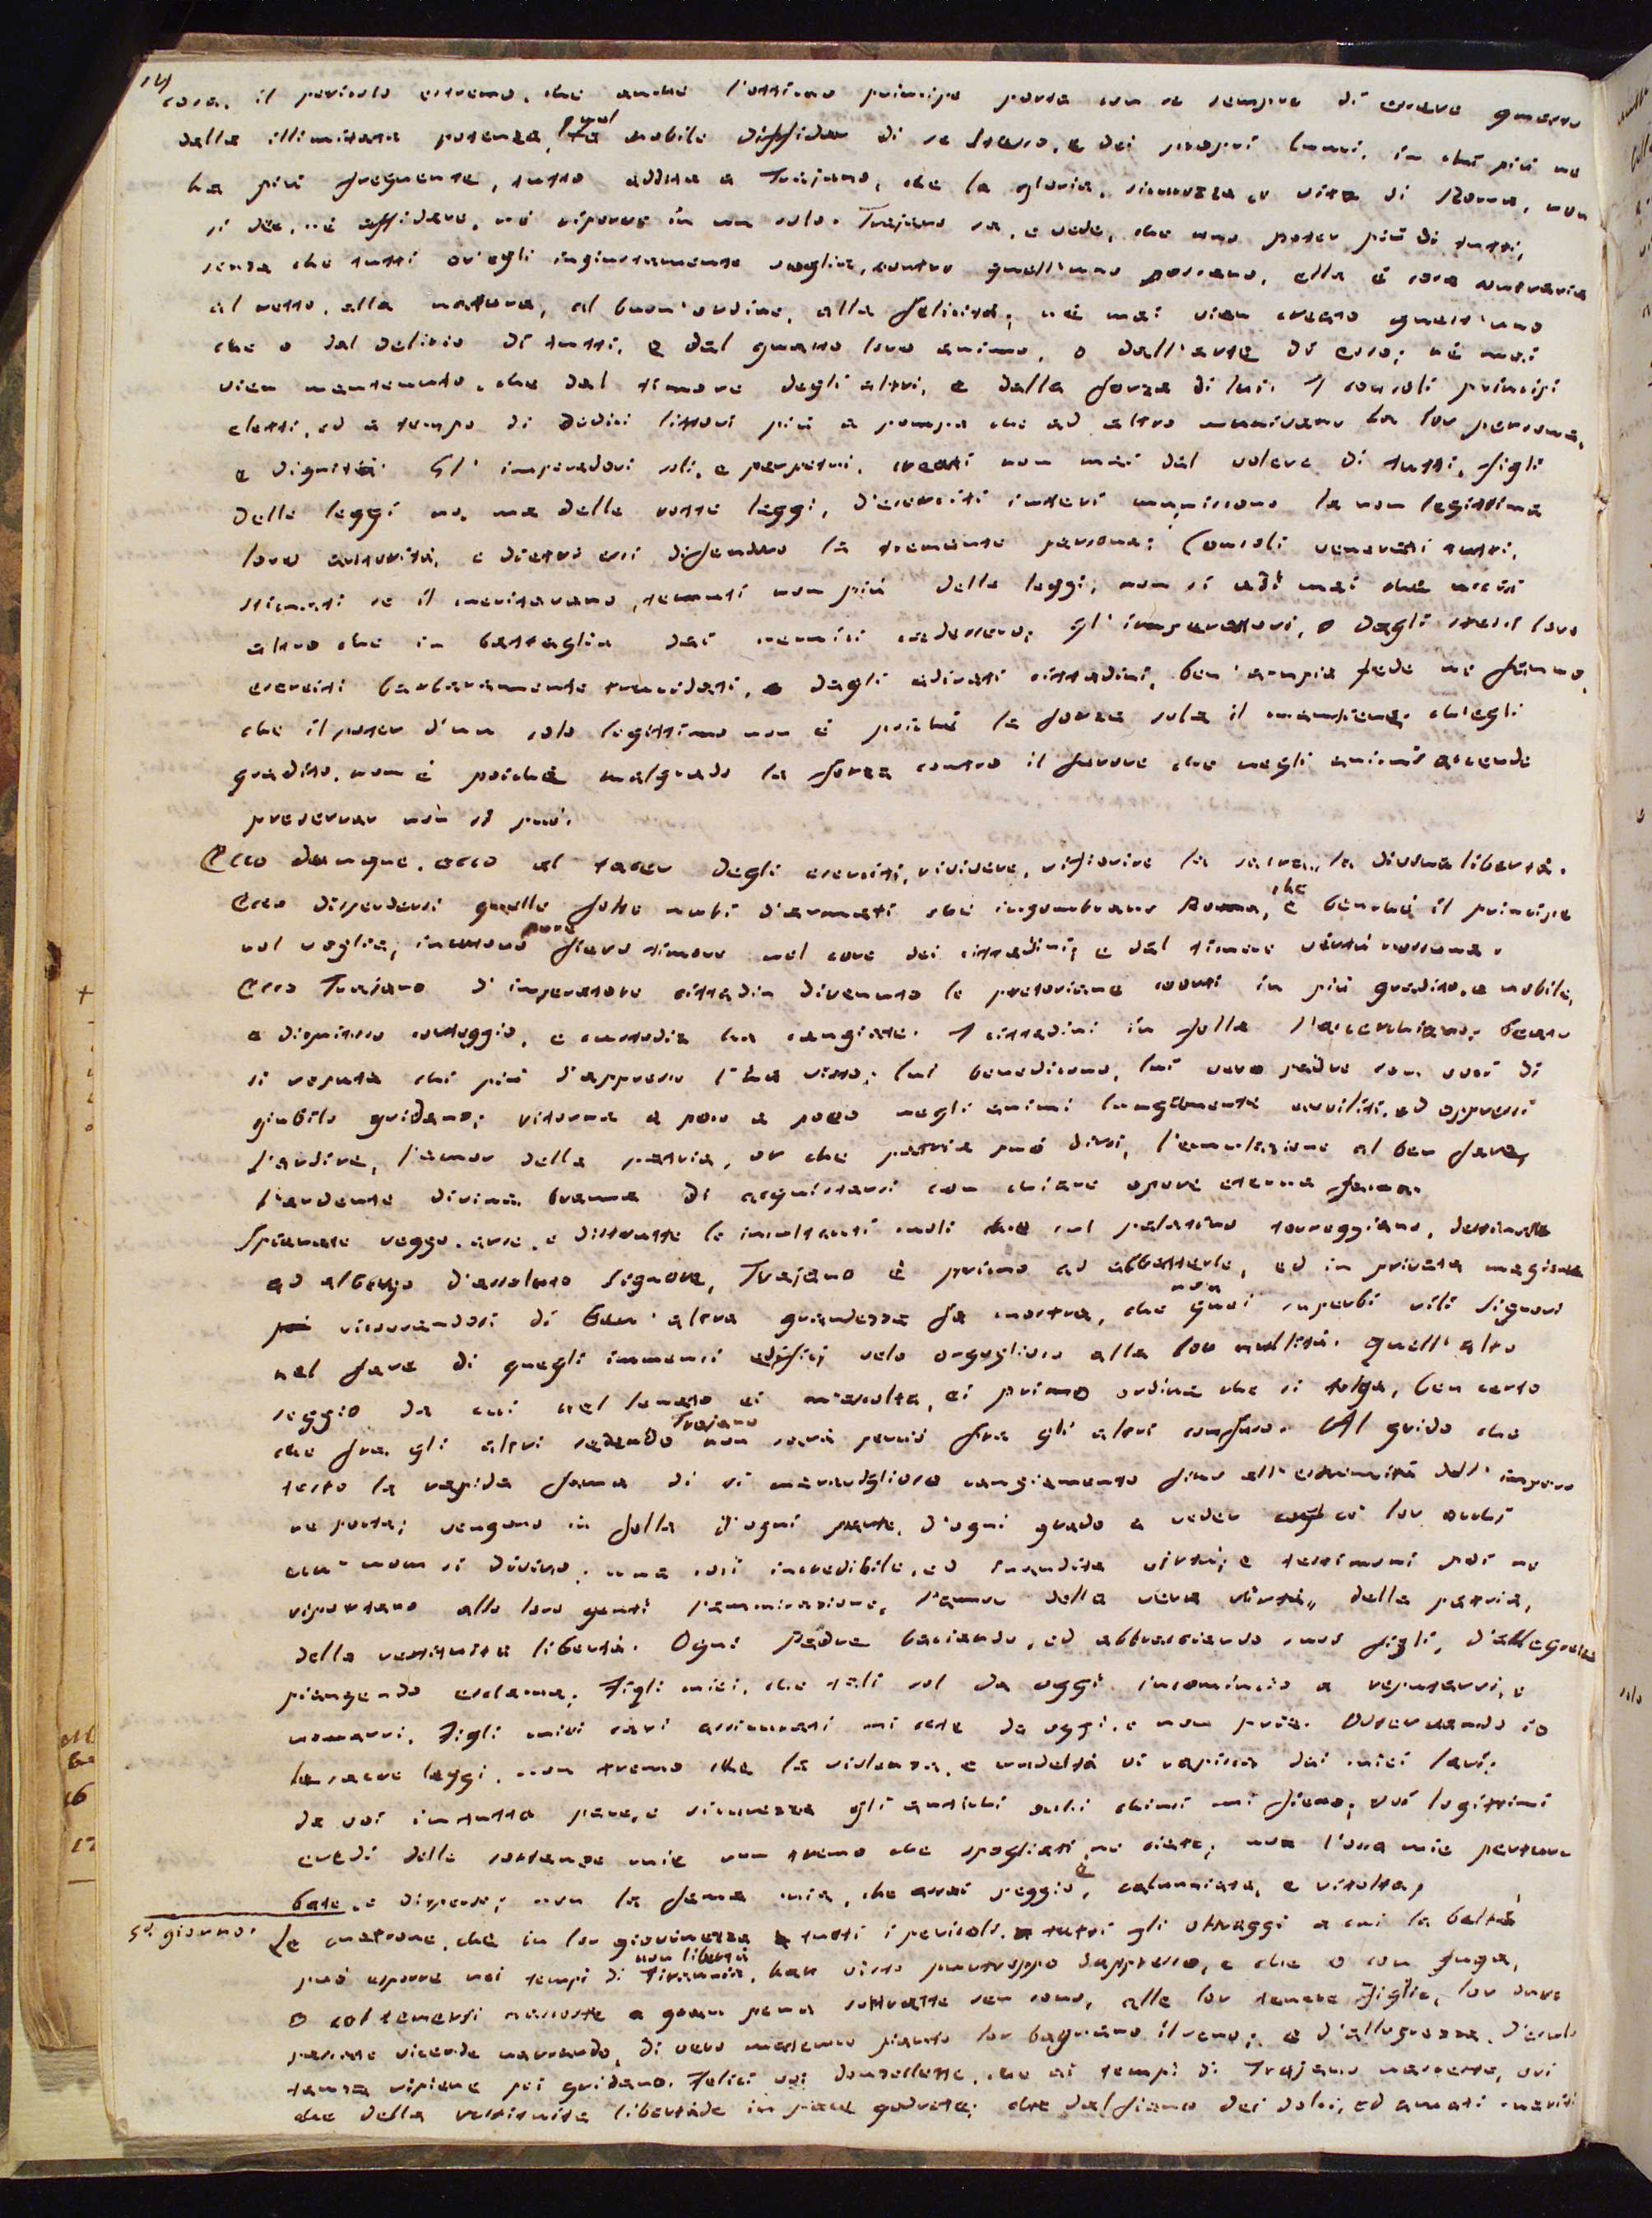 14
cosa. il pericolo estremo, che anche l'ottimo principe porta con se sempre di essere guasto
dalla illimitata potenza, quel nobile diffidar di se stesso, e dei propri lumi, in chi più ne
ha più frequente, tutto addita a Trajano, che la gloria, sicurezza, e vita di Roma, non
si dee, nè affidare, nè riporre in un solo. Trajano sa, e vede, che uno poter più di tutti,
senza che tutti ov'egli ingiustamente voglia, contro quell'uno possano, ella è cosa contraria
al retto, alla natura, al buon'ordine, alla felicità; nè mai vien creato quest'uno
che o dal delirio di tutti, e dal guasto loro animo, o dall'arte di esso; nè mai
vien mantenuto, che dal timore degli altri, e dalla forza di lui. I consoli principi
eletti, ed a tempo di dodici littori più a pompa che ad altro munivano la lor persona,
e dignità. Gl'imperadori soli, e perpetui, creati non mai dal volere di tutti, figli
delle leggi no, ma delle rotte leggi, d'eserciti interi muniscono la non legittima
loro autorità, e dietro essi difendono la tremante persona; Consoli venerati tutti,
stimati se il meritavano, temuti non più delle leggi, non si udì mai che uccisi
altro che in battaglia dai nemici cadessero; gl'imperatori, o dagli stessi loro
eserciti barbaramente trucidati, o dagli adirati cittadini, ben'ampia fede ne fanno,
che il poter d'un solo legittimo non è poichè la forza sola il mantiene; ch'egli
gradito, non è poichè malgrado la forza contro il furore che negli animi accende
preservar non si può.
Ecco dunque, ecco al tacer degli eserciti, rividere, rifiorire la sacra, la divina libertà.
Ecco disperdersi quelle folte nubi d'armati che ingombrano Roma, che benchè il principe
nol voglia, incutono pure fiero timore nel core dei cittadini; e dal timore virtù nessuna.
Ecco Trajano d'imperatore cittadin divenuto le pretoriane coorti in più gradito, e nobile,
e dignitoso corteggio, e custodia ha cangiate. I cittadini in folla l'accerchiano; beato
si reputa chi più d'appresso l'ha visto; lui benedicono, lui vero padre con voci di
giubilo gridano; ritorna a poco a poco negli animi lungamente avviliti, ed oppressi
l'ardire, l'amor della patria, or che patria può dirsi, l'emulazione al ben fare,
l'ardente divina brama di acquistarsi con chiare opere eterna fama.
Spianate veggo, arse, e distrutte le insultanti moli che sul palatino torreggiano, destinate
ad albergo d'assoluto Signore, Trajano è primo ad abbatterle, ed in privata magione
ricovrandosi di ben'altra grandezza fa mostra, che non quei superbi vili signori
nel fare di quegli immensi edifici velo orgoglioso alla lor nullità. Quell'alto
seggio da cui nel senato ei m'ascolta, ei primo ordina che si tolga, ben certo
che fra gli altri sedendo Trajano non sarà perciò fra gli altri confuso. Al grido che
tosto la rapida fama di sì maraviglioso cangiamento fino all'estremità dell'impero
ne porta; vengono in folla d'ogni parte, d'ogni grado a veder co' lor occhi
un'uom sì divino, una così incredibile, ed inaudita virtù; e testimoni poi ne
riportano alle loro genti l'ammirazione, l'amor della vera virtù, della patria,
della restituita libertà. Ogni Padre baciando, ed abbracciando suoi figli, d'allegrezza
piangendo esclama; Figli miei, che tali sol da oggi incomincio a reputarvi, e
nomarvi, Figli miei cari assicurati mi sete da oggi, e non pria. Osservando io
le sacre leggi, non tremo che la violenza, e crudeltà vi rapisca dai miei lari;
da voi in tutta pace, e sicurezza gli antichi occhi chiusi mi fieno; voi legittimi
eredi delle sostanze mie non tremo che spogliati ne siate; non l'ossa mie pertur-
bate, e disperse; non la fama mia, che assai peggio è, calunniata, e ritolta,
5º giorno. Le matrone, che in lor giovinezza tutti i pericoli, tutti gli oltraggi a cui la beltà
può esporre nei tempi di non libertà Tirannia, han visto purtroppo dappresso, e che o con fuga,
o col tenersi nascoste a gran pena sottratte sen sono, alle lor tenere Figlie, lor dure
passate vicende narrando, di vero materno pianto lor bagnano il seno; e d'allegrezza, d'esul-
tanza ripiene poi gridano. Felici voi donzellette, che ai tempi di Trajano nasceste, voi
che della restituita libertade in pace godrete; che dal fianco dei dolci, ed amati mariti